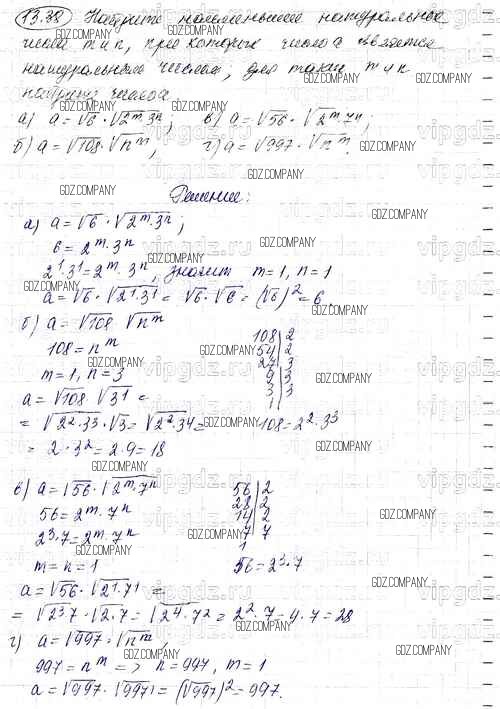 13.38 Найдите наименьшие натуральные
числа m и n, при которых число a является
натуральным числом, для таких m и n
найдите число a.
а) a = √6 · √2^m·3^n ; в) a = √56 · √2^m·7^n ;
б) a = √108 · √n^m ; г) a = √997 · √n^m.
Решение:
а) a = √6 · √2^m·3^n ;
6 = 2^m · 3^n
2^1·3^1 = 2^m · 3^n, значит m = 1, n = 1
a = √6 · √2^1·3^1 = √6 · √6 = (√6)^2 = 6.
б) a = √108 √n^m
108 = n^m
m = 1, n = 3
a = √108 · √3^1 =
= √2^2·3^3 · √3 = √2^2·3^4 =
= 2 · 3^2 = 2 · 9 = 18
108 | 2
54 | 2
27 | 3
9 | 3
3 | 3
1
108 = 2^2 · 3^3
в) a = √56 · √2^m·7^n
56 = 2^m · 7^n
2^3·7 = 2^m · 7^n
m = n = 1
56 | 2
28 | 2
14 | 2
7 | 7
1
56 = 2^3 · 7
a = √56 · √2^1·7^1 =
= √2^3·7 · √2·7 = √2^4·7^2 = 2^2 · 7 = 4 · 7 = 28
г) a = √997 · √n^m,
997 = n^m => n = 997, m = 1
a = √997 · √997^1 = (√997)^2 = 997.
GDZ.COMPANY
vipgdz.ru